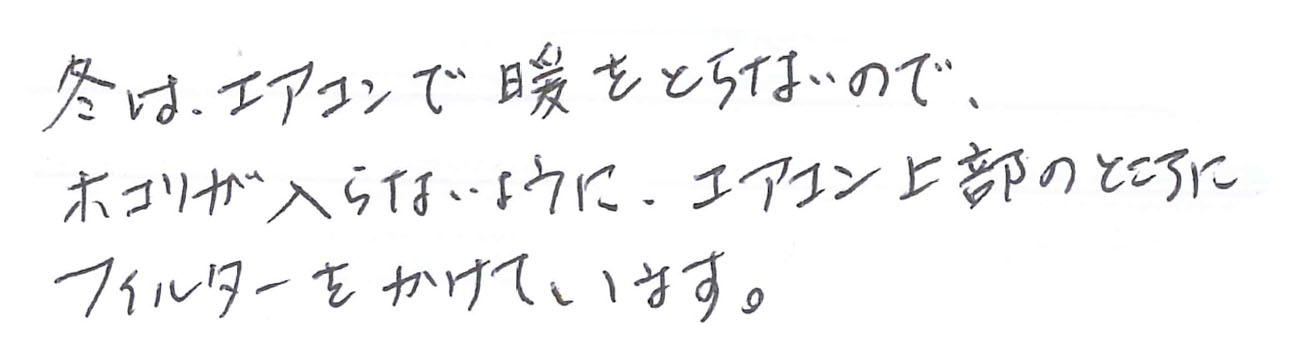 冬は、エアコンで暖をとらないので、
ホコリが入らないように、エアコン上部のところに
フィルターをかけています。